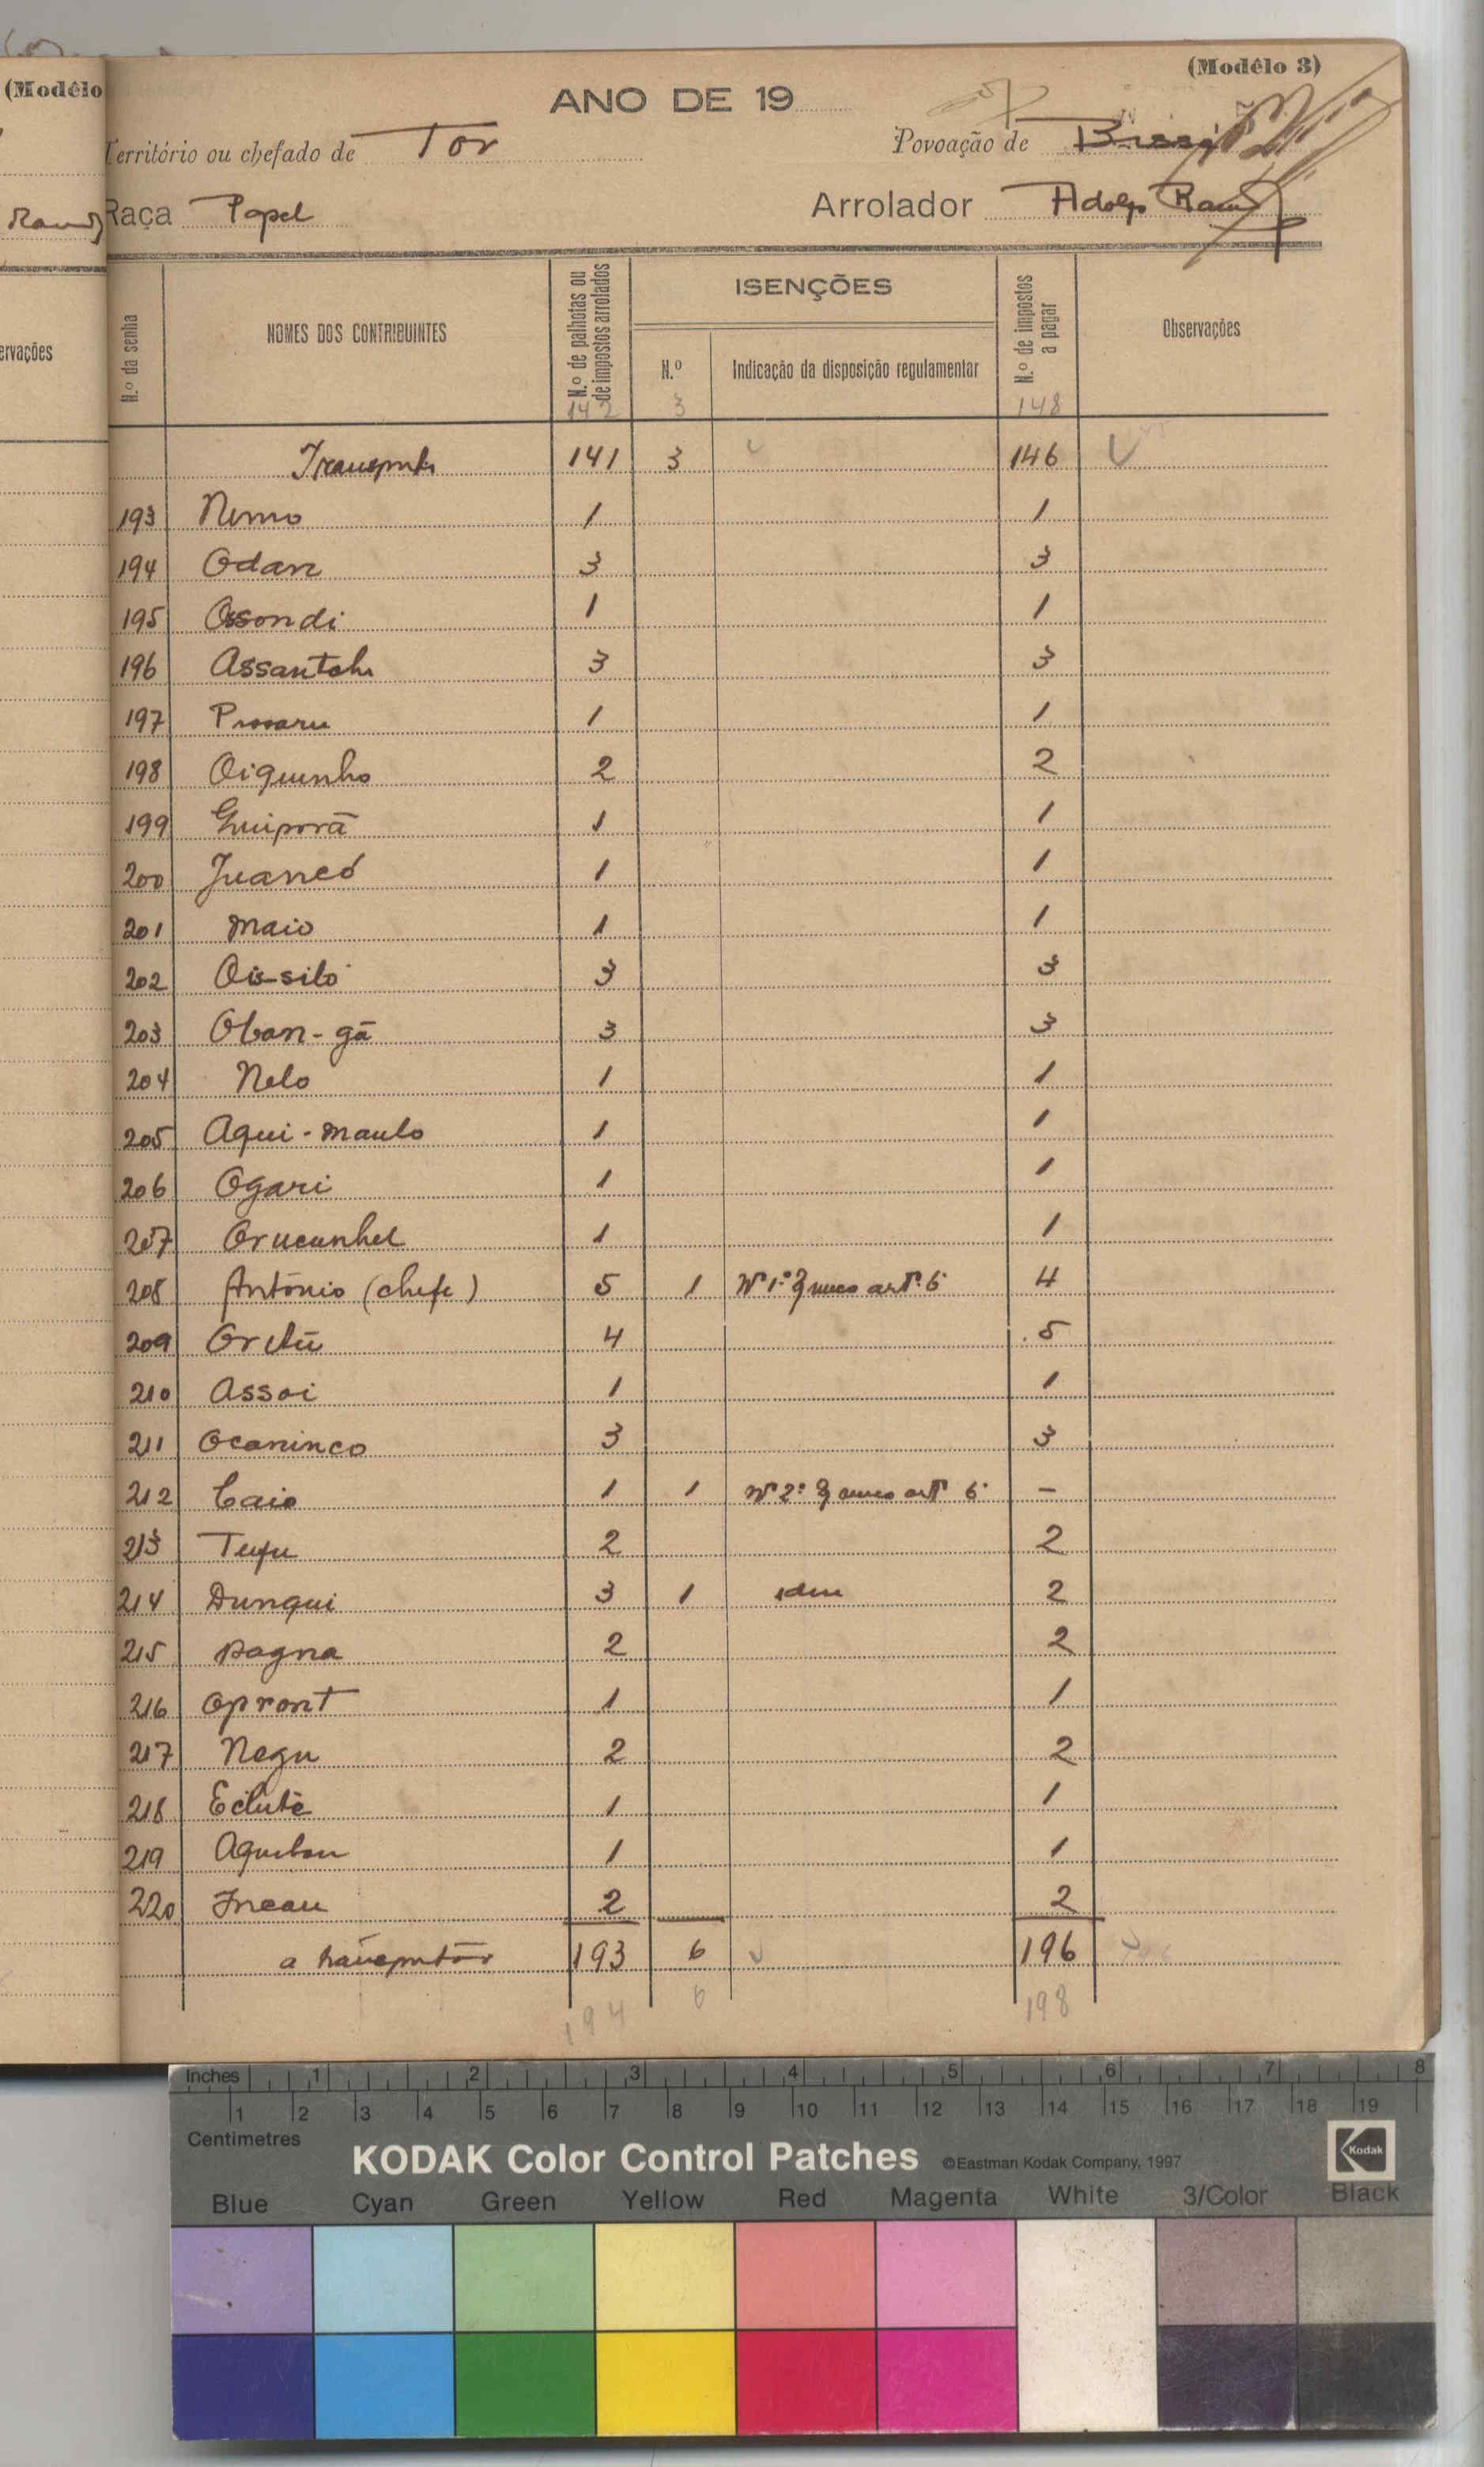 (Modêlo
(Modêlo 3)
ANO DE 19
Território ou chefado de Tor
Povoação de
Raça Papel
Arrolador Adolfo Ramos
ervações
N.º da senha
NOMES DOS CONTRIBUINTES
N.º de palhotas ou de impostos arrolados
ISENÇÕES
N.º
Indicação da disposição regulamentar
N.º de impostos a pagar
Observações
142 3 148
Transporte 141 3 146
193 Nemo 1 1
194 Odan 3 3
195 Ossondi 1 1
196 Assantch 3 3
197 1 1
198 Oiquinho 2 2
199 Guiporã 1 1
200 Juancó 1 1
201 Maio 1 1
202 Ois-siló 3 3
203 Oban-gã 3 3
204 Nelo 1 1
205 Aqui-maulo 1 1
206 Ogari 1 1
207 Orucunhel 1 1
208 António (chefe) 5 1 Nº 1º § unico artº 6º 4
209 4 5
210 Assoi 1 1
211 Ocaninco 3 3
212 Caio 1 1 Nº 2º § unico artº 6º -
213 Tufu 2 2
214 Dunqui 3 1 idem 2
215 Dagna 2 2
216 Opront 1 1
217 Negu 2 2
218 Eclutè 1 1
219 1 1
220 Incau 2 2
a transportar 193 6 196
194 6 198
Inches 1 2 3 4 5 6 7 8
1 2 3 4 5 6 7 8 9 10 11 12 13 14 15 16 17 18 19
Centimetres
KODAK Color Control Patches ©Eastman Kodak Company, 1997
Kodak
Blue Cyan Green Yellow Red Magenta White 3/Color Black